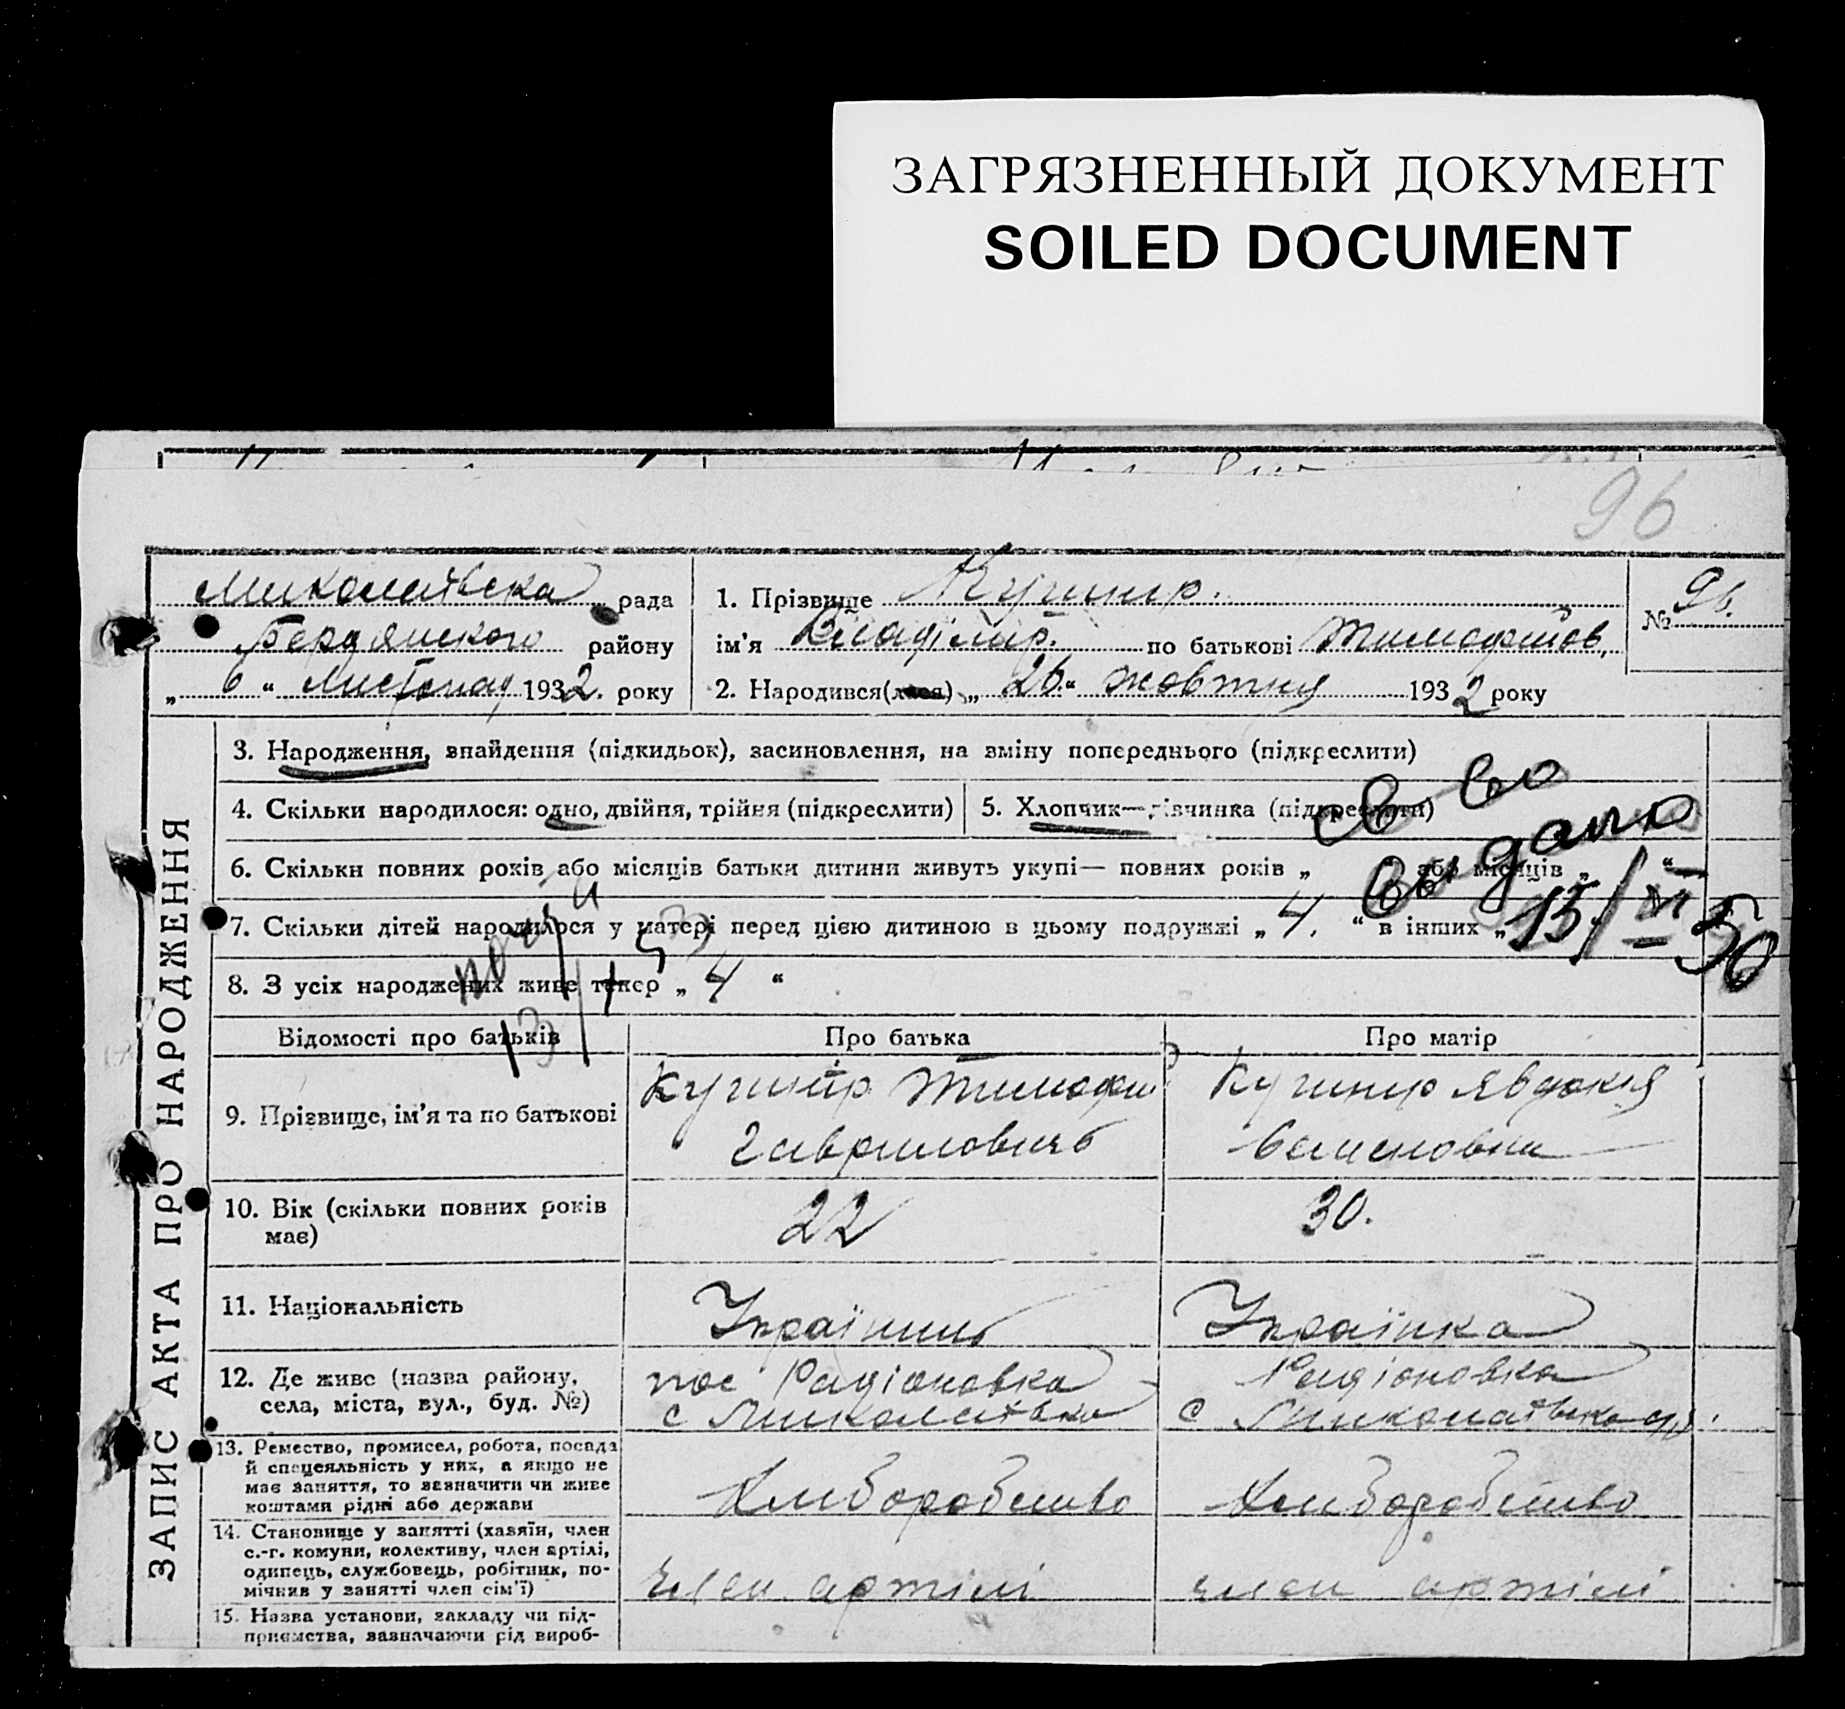 ЗАГРЯЗНЕННЫЙ ДОКУМЕНТ
SOILED DOCUMENT
96
Миколаївска рада
Бердянского району
„ 6 “ Листопад 1932. року
1. Прізвище Кушнир.
ім'я Владімир. по батькові Тимофейов,
2. Народився(лася) „ 26. “ жовтня 1932 року
№ 96.
ЗАПИС АКТА ПРО НАРОДЖЕННЯ
3. Народження, знайдення (підкидьок), засиновлення, на зміну попереднього (підкреслити)
4. Скільки народилося: одно, двійня, трійня (підкреслити)
5. Хлопчик—дівчинка (підкреслити)
6. Скільки повних років або місяців батьки дитини живуть укупі— повних років „ або місяців „ “
7. Скільки дітей народилося у матері перед цією дитиною в цьому подружжі „ 4. “ в інших „
8. З усіх народжених живе тепер „ 4 “
св во
выдано
15/VI 50
Відомості про батьків
Про батька
Про матір
9. Прізвище, ім'я та по батькові
Кушнір Тимофей
Гаврилович
Кушнир Явдокія
Семеновна
10. Вік (скільки повних років
має)
22
30.
11. Національність
Українець
Українка
12. Де живе (назва району,
села, міста, вул., буд. №)
пос Радіоновка
с Миколаївка
Радіоновка
с Миколаївка
13. Ремество, промисел, робота, посада
й спецеяльність у них, а якщо не
має заняття, то зазначити чи живе
коштами рідні або держави
Хлиборобство
Хлиборобство
14. Становище у занятті (хазяїн, член
с.-г. комуни, колективу, член артілі,
одинець, службовець, робітник, по-
мічник у занятті член сім'ї)
член артілі
член артілі
15. Назва установи, закладу чи під-
приємства, зазначаючи рід вироб-